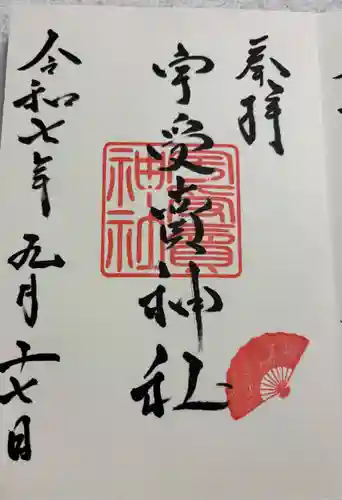 奉拝
宇受賣神社
令和七年 九月 二十七日
宇受賣
神社